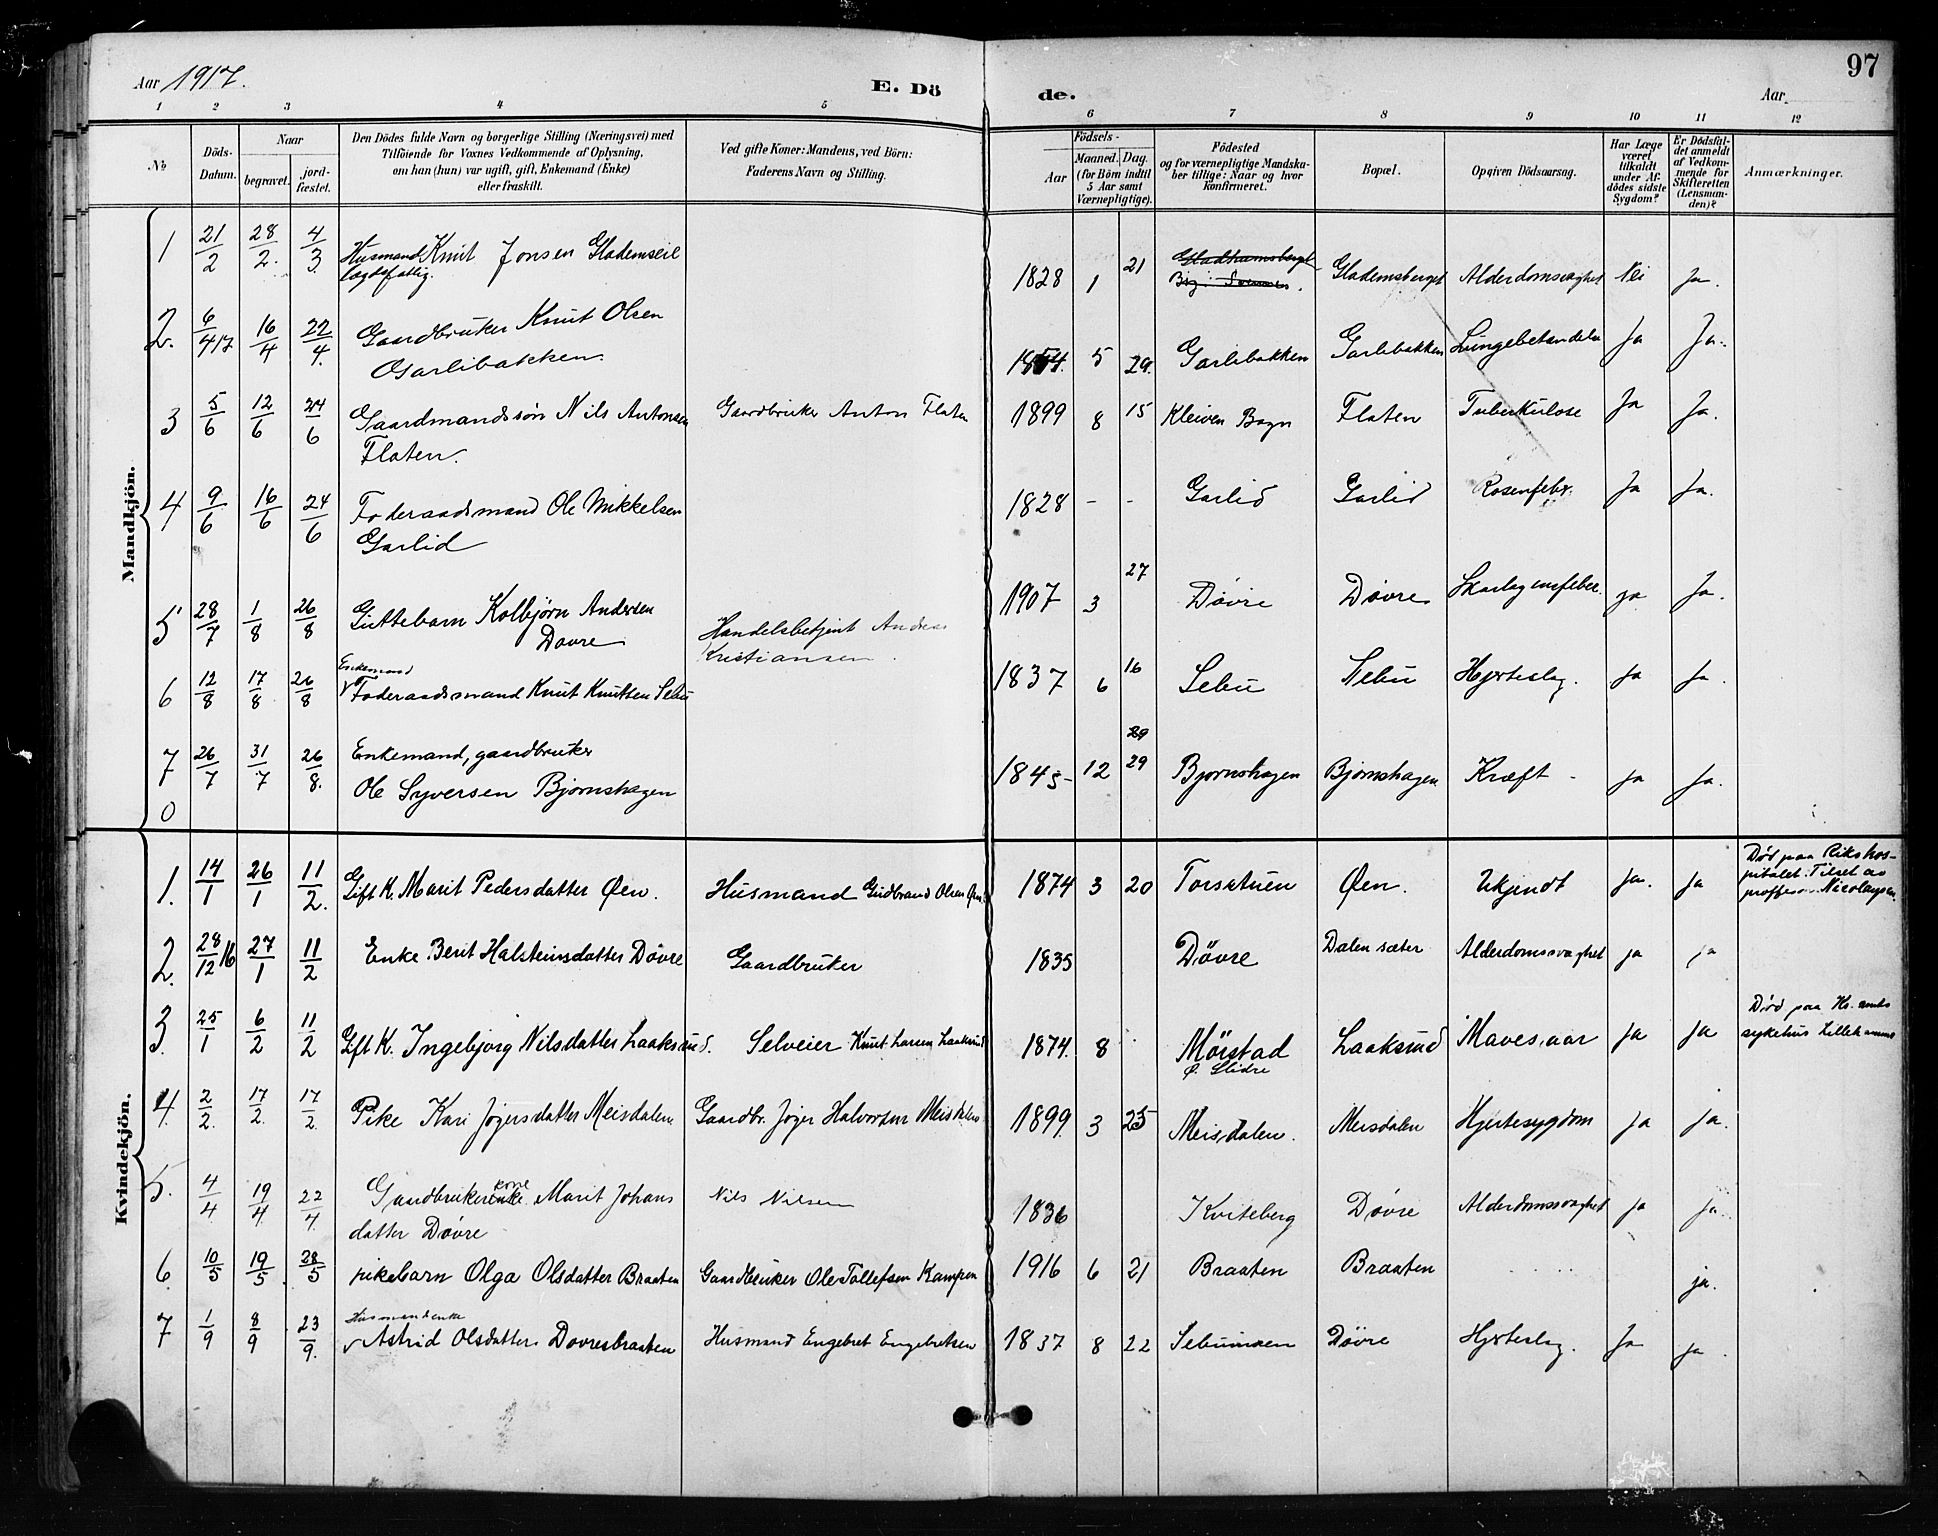 Aar 1917.
E. Dö
de.
Aar
97
1 2 3 4 5 6 7 8 9 10 11 12
No
Döds-Datum.
Naar
begravet.
jord-fæstet.
Den Dödes fulde Navn og borgerlige Stilling (Næringsvei) med
Tilföiende for Voxnes Vedkommende af Oplysning,
om han (hun) var ugift, gift, Enkemand (Enke)
eller fraskilt.
Ved gifte Koner: Mandens, ved Börn:
Faderens Navn og Stilling.
Födsels-
Aar
Maaned. Dag.
(for Börn indtil
5 Aar samt
Værnepligtige).
Födested
og for værnepligtige Mandska-
ber tillige: Naar og hvor
konfirmeret.
Bopæl.
Opgiven Dödsaarsag.
Har Læge
været
tilkaldt
under Af-
dödes sidste
Sygdom?
Er Dödsfal-
det anmeldt
af Vedkom-
mende for
Skifteretten
(Lensman-
den)?
Anmærkninger.
Mandkjön.
1 21/2 28/2. 4/3 Husmand Knut Jonsen Glademseie 1828 1 21 Gladhamsberget Glademsberget Alderdomsvaghet Nei Ja.
lægdsfattig.
2. 6/4 17 16/4 22/4. Gaardbruker Knut Olsen 1854. 5 29. Garlibakken Garlibakken Lungebetændelse Ja Ja.
Garlibakken.
3 5/6 12/6 24/6 Gaardmandssøn Nils Antonsen Gaardbruker Anton Flaten 1899 8 15 Kleiven Bagn Flaten Tuberkulose Ja Ja.
Flaten.
4 9/6 16/6 24/6 Føderaadsmand Ole Mikkelsen 1828 - - Garlid Garlid Rosenfeber. Ja Ja.
Garlid
5 28/7 1/8 26/8 Guttebarn Kolbjørn Andersen Handelsbetjent Andreas 1907 3 27 Døvre Døvre Skarlagensfeber. ja Ja.
Dovre Kristiansen.
Enkemand
6 12/8 17/8 26/8 Føderaadsmand Knut Knutsen Sebu 1837 6 16 Sebu Sebu Hjerteslag. Ja Ja.
29
7 26/7 31/7 26/8. Enkemand, gaardbruker 1845- 12 29 Bjørnshagen Bjørnshagen Kræft - ja Ja.
0 Ole Syversen Bjørnshagen
Kvindekjön.
1. 14/1 26/1 11/2. Gift K. Marit Pedersdatter Øen. Husmand Gudbrand Olsen Øen. 1874 3 20 Torsatuen Øen. Ukjendt ja. ja Død paa Rikshos-
pitalet. Tilset av
proffessor Nicolaysen.
2. 28/12 16 27/1 11/2 Enke Berit Halsteinsdatter Døvre Gaardbruker 1835 Døvre Dalen sæter Alderdomssvaghet ja ja
3. 25/1 6/2 11/2 Gift K. Ingebjørg Nilsdatter Laaksrud. Selveier Knut Larsen Laaksrud 1874. 8 Møistad Laaksrud Mavesaar ja ja Død paa Kr. amts
Ø. Slidre sykehus Lillehammer
4. 2/2. 17/2. 17/2. Pike Kari Jøgersdatter Meisdalen Gaardbr. Jøger Halvorsen Meisdalen 1899. 3 25 Meisdalen. Meisdalen Hjertesygdom ja ja.
5. 4/4 19/4. 22/4. Gaardbrukerenke kone Marit Johans Nils Nilsen 1836 Kviteberg Døvre Alderdomssvaghet ja ja.
datter Døvre
6. 10/5 19/5. 28/5 pikebarn Olga Olsdatter Braaten Gaardbruker Ole Tollefsen Kampen 1916 6 21 Braaten Braaten ja.
Husmandsenke
7 1/9 8/9 23/9. Astrid Olsdatter Dovresbraaten Husmand Engebret Engebretsen 1837 8 22 Sebumoen Døvre Hjerteslag. Ja ja.